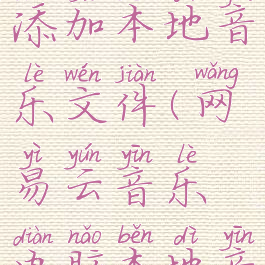 添加本地音
lè wén jiàn wǎng
乐文件(网
yì yún yīn lè
易云音乐
diàn nǎo běn dì yīn
电脑本地音